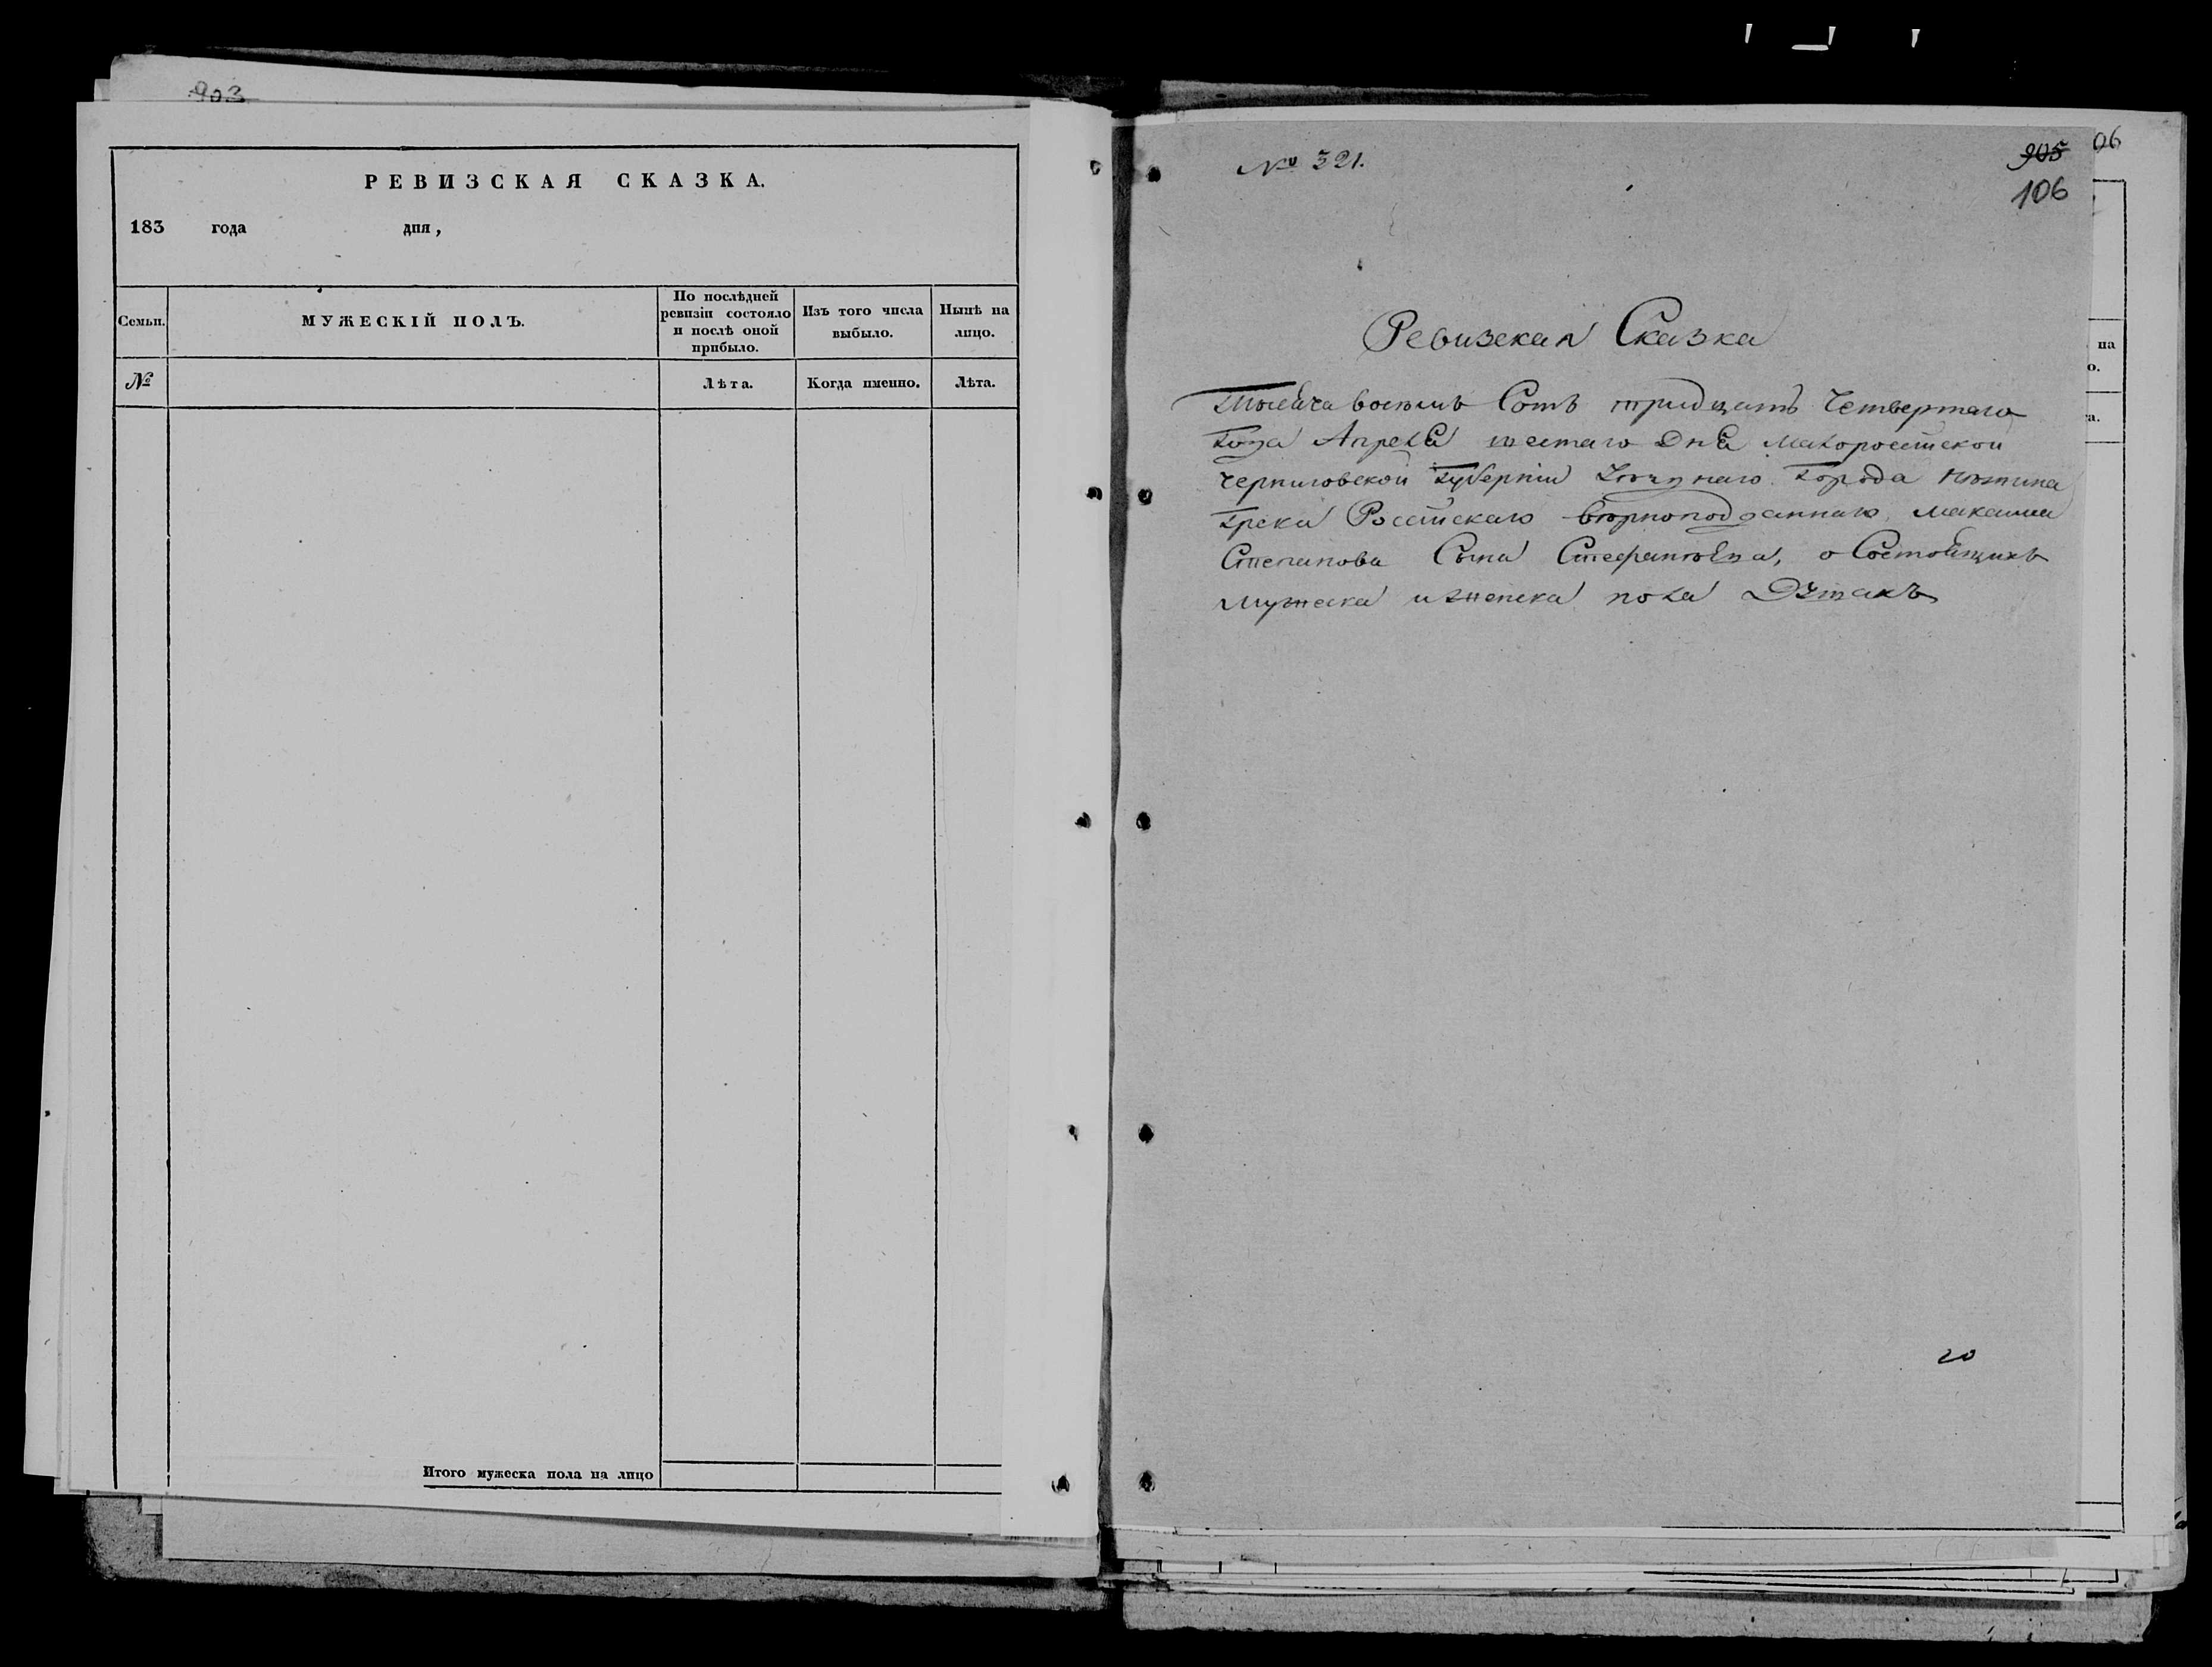 903
РЕВИЗСКАЯ СКАЗКА.
183 года дня,
Семьи.
МУЖЕСКІЙ ПОЛЪ.
По послѣдней
ревизіи состояло
и послѣ оной
прибыло.
Изъ того числа
выбыло.
Нынѣ на
лицо.
№
Лѣта.
Когда именно.
Лѣта.
Итого мужеска пола на лицо
№ 321.
905
106
06
на
о.
а.
Ревизская Сказка
Тысяча восемь Сотъ тридцать Четвертаго
Года Апреля шестаго Дня Малоросійской
Черниговской Губерніи города Нежина
Грека Російскаго вѣрноподданнаго Максима
Степанова Сына о Состоящихъ
Мужеска и женска пола Душахъ
20